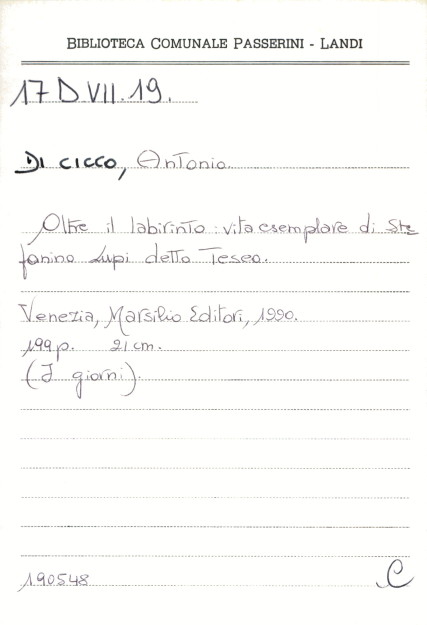 BIBLIOTECA COMUNALE PASSERINI - LANDI
17 D VII. 19.
DI CICCO, Antonio
Oltre il labirinto : vita esemplare di Ste
fanino Lupi detto Teseo.
Venezia, Marsilio Editori, 1990.
199 p. 21 cm.
(I giorni).
190548 C